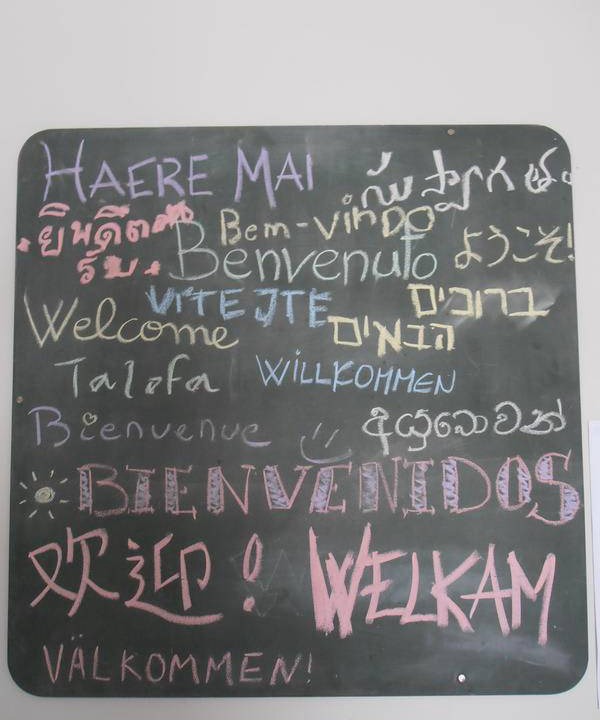 HAERE MAI
ยินดีต
รับ
Bem-vindo
Benvenuto
ようこそ!
VÍTEJTE
ברוכים
הבאים
Welcome
Talofa
WILLKOMMEN
Bienvenue
අයුබොවන්
BIENVENIDOS
欢迎!
WELKAM
VÄLKOMMEN!